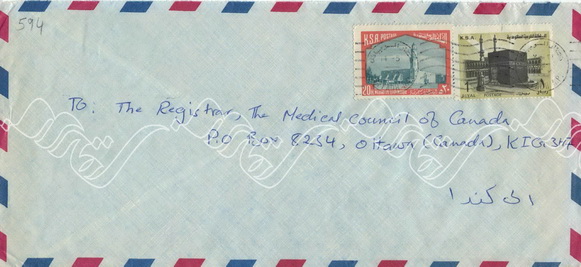 594
K.S.A. POSTAGE
20
K.S.A.
To: The Registrar, The Medical Council of Canada
P.O Box 8234, Ottawa (Canada), K1G 3H7
الى كندا